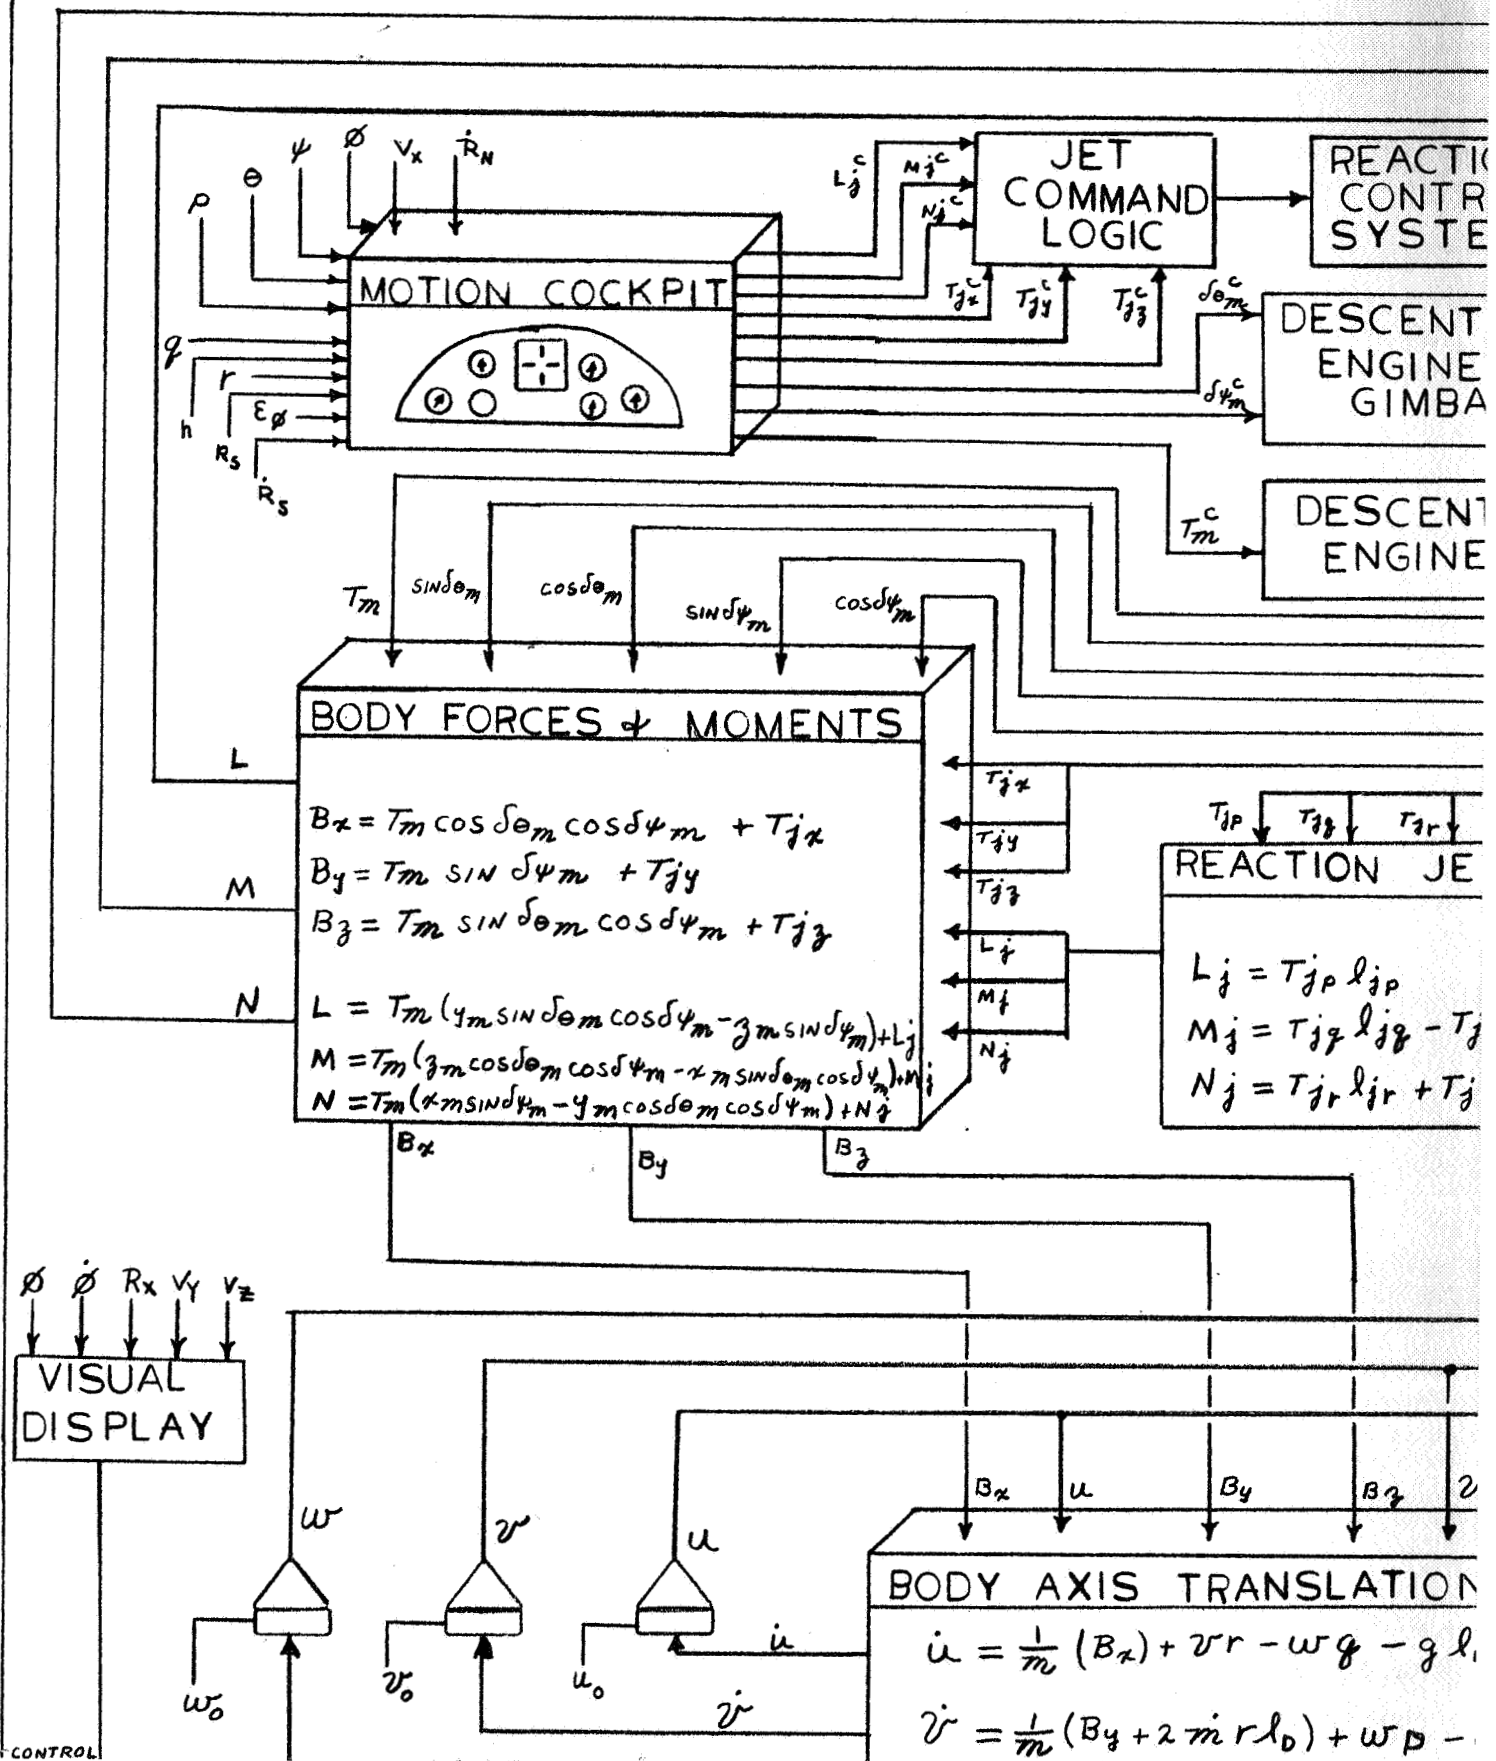 ψ
ø
Vx
Ṙ_N
θ
p
q
h
r
R_s
ε_ø
Ṙ_s
MOTION COCKPIT
L_j^c
M_j^c
N_j^c
JET
COMMAND
LOGIC
T_jx^c
T_jy^c
T_jz^c
REACTI
CONTR
SYSTE
δθ_m^c
δψ_m^c
DESCENT
ENGINE
GIMBA
T_m^c
DESCENT
ENGINE
T_m
SINδθ_m
COSδθ_m
SINδψ_m
COSδψ_m
BODY FORCES & MOMENTS
L
M
N
B_x = T_m COS δθ_m COS δψ_m + T_jx
B_y = T_m SIN δψ_m + T_jy
B_z = T_m SIN δθ_m COS δψ_m + T_jz
L = T_m (y_m SIN δθ_m COS δψ_m - z_m SIN δψ_m) + L_j
M = T_m (z_m COS δθ_m COS δψ_m - x_m SIN δθ_m COS δψ_m) + M_j
N = T_m (x_m SIN δψ_m - y_m COS δθ_m COS δψ_m) + N_j
T_jx
T_jy
T_jz
L_j
M_j
N_j
T_jp
T_jq
T_jr
REACTION JE
L_j = T_jp l_jp
M_j = T_jq l_jq - T_j
N_j = T_jr l_jr + T_j
B_x
B_y
B_z
ø
ø̇
R_x
V_Y
V_Z
VISUAL
DISPLAY
w
v
u
w_o
v_o
u_o
u̇
v̇
B_x
u
B_y
B_z
v
BODY AXIS TRANSLATION
u̇ = 1/m (B_x) + vr - wq - g l
v̇ = 1/m (B_y + 2 ṁ r l_D) + wp -
CONTROL